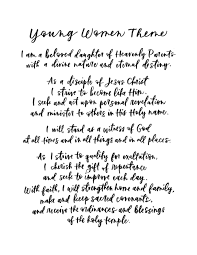 Young Women Theme
I am a beloved daughter of Heavenly Parents
with a divine nature and eternal destiny.
As a disciple of Jesus Christ
I strive to become like Him.
I seek and act upon personal revelation
and minister to others in His Holy name.
I will stand as a witness of God
at all times and in all things and in all places.
As I strive to qualify for exaltation,
I cherish the gift of repentance
and seek to improve each day.
With faith, I will strengthen home and family,
make and keep sacred covenants,
and receive the ordinances and blessings
of the holy temple.